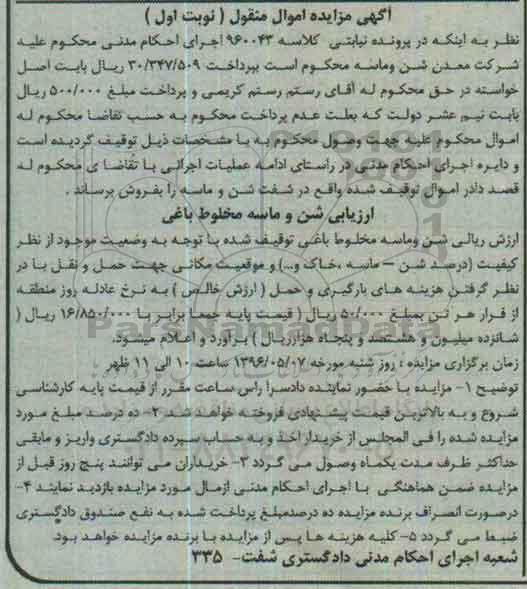 آگهی مزایده اموال منقول ( نوبت اول )
نظر به اینکه در پرونده نیابتی کلاسه ۹۶۰۰۴۳ اجرای احکام مدنی محکوم علیه
شرکت معدن شن وماسه محکوم است بپرداخت ۳۰/۳۴۷/۵۰۹ ریال بابت اصل
خواسته در حق محکوم له آقای رستم رستم کریمی و پرداخت مبلغ ۵۰۰/۰۰۰ ریال
بابت نیم عشر دولت که بعلت عدم پرداخت محکوم به حسب تقاضا محکوم له
اموال محکوم علیه جهت وصول محکوم به با مشخصات ذیل توقیف گردیده است
و دایره اجرای احکام مدنی در راستای ادامه عملیات اجرائی با تقاضا ی محکوم له
قصد دادر اموال توقیف شده واقع در شفت شن و ماسه را بفروش برساند .
ارزیابی شن و ماسه مخلوط باغی
ارزش ریالی شن وماسه مخلوط باغی توقیف شده با توجه به وضعیت موجود از نظر
کیفیت (درصد شن – ماسه ،خاک و...) و موقعیت مکانی جهت حمل و نقل با در
نظر گرفتن هزینه های بارگیری و حمل ( ارزش خالص ) به نرخ عادله روز منطقه
از قرار هر تن بمبلغ ۵۰/۰۰۰ ریال ( قیمت پایه جمعا برابر با ۱۶/۸۵۰/۰۰۰ ریال (
شانزده میلیون و هشتصد و پنجاه هزارریال ) برآورد و اعلام میشود.
زمان برگزاری مزایده : روز شنبه مورخه ۱۳۹۶/۰۵/۰۷ ساعت ۱۰ الی ۱۱ ظهر
توضیح ۱- مزایده با حضور نماینده دادسرا راس ساعت مقرر از قیمت پایه کارشناسی
شروع و به بالاترین قیمت پیشنهادی فروخته خواهد شد ۲- ده درصد مبلغ مورد
مزایده شده را فی المجلس از خریدار اخذ و به حساب سپرده دادگستری واریز و مابقی
حداکثر ظرف مدت یکماه وصول می گردد ۳- خریداران می توانند پنج روز قبل از
مزایده ضمن هماهنگی با اجرای احکام مدنی ازمال مورد مزایده بازدید نمایند ۴-
درصورت انصراف برنده مزایده ده درصدمبلغ پرداخت شده به نفع صندوق دادگستری
ضبط می گردد ۵- کلیه هزینه ها پس از مزایده با برنده مزایده خواهد بود.
شعبه اجرای احکام مدنی دادگستری شفت- ۳۳۵
ParsNamadData